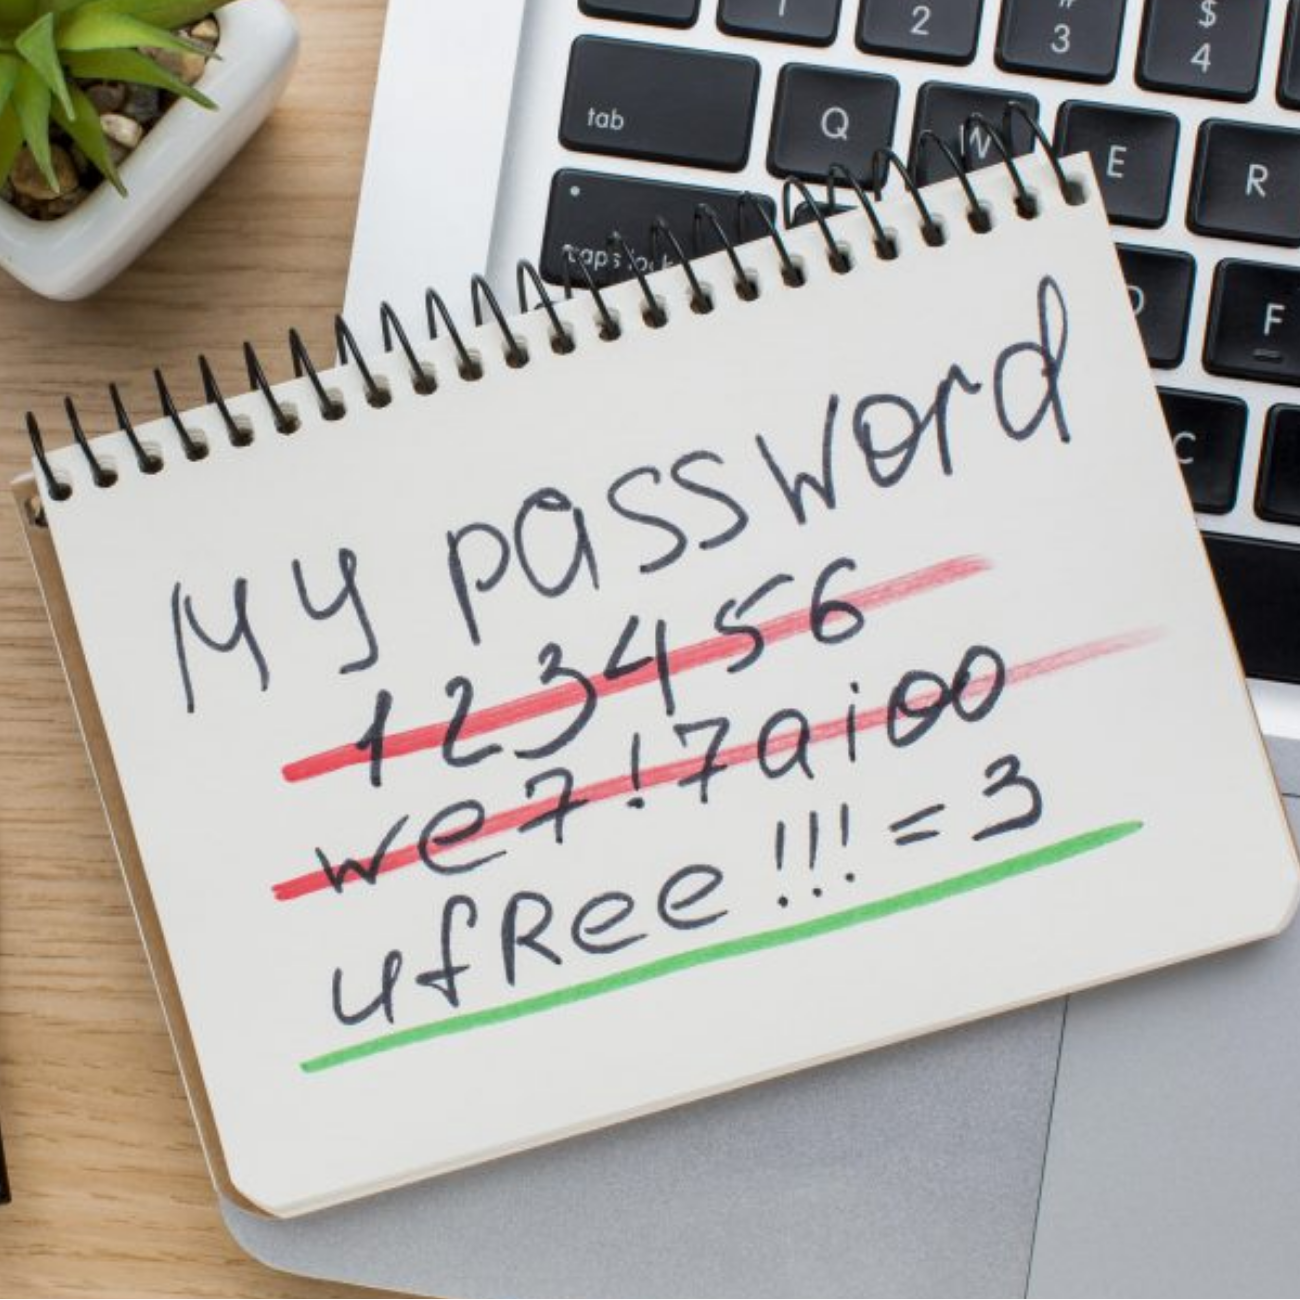 1 2 3 4
# $
tab Q W E R
caps lock D F
C
My password
123456
we7!7aioo
ufRee!!!=3